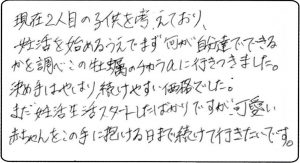 現在2人目の子供を考えており、
妊活を始めるうえでまず何が自分達でできる
かを調べこの牡蠣のチカラαに行きつきました。
決め手はやはり続けやすい価格でした。
まだ妊活生活スタートしたばかりですが、可愛い
赤ちゃんをこの手に抱ける日まで続けて行きたいです。